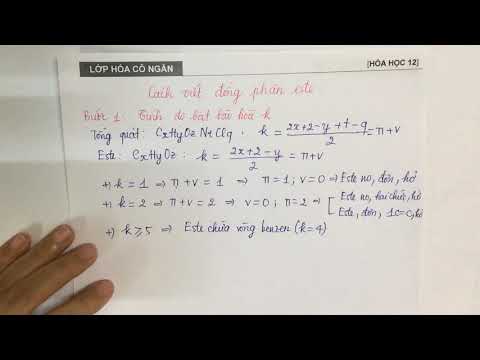 LỚP HÓA CÔ NGÂN
[HÓA HỌC 12]
Cách viết đồng phân este
Bước 1: Tính độ bất bão hoà k
Tổng quát: CxHyOzNtClq. k = (2x+2-y+t-q)/2 = π+v
Este: CxHyOz: k = (2x+2-y)/2 = π+v
+) k = 1 ⇒ π+v = 1 ⇒ π=1; v=0 ⇒ Este no, đơn, hở
+) k = 2 ⇒ π+v = 2 ⇒ v=0; π=2 ⇒ [ Este no, hai chức, hở
Este, đơn, 1c=c, hở
+) k ≥ 5 ⇒ Este chứa vòng benzen (k=4)